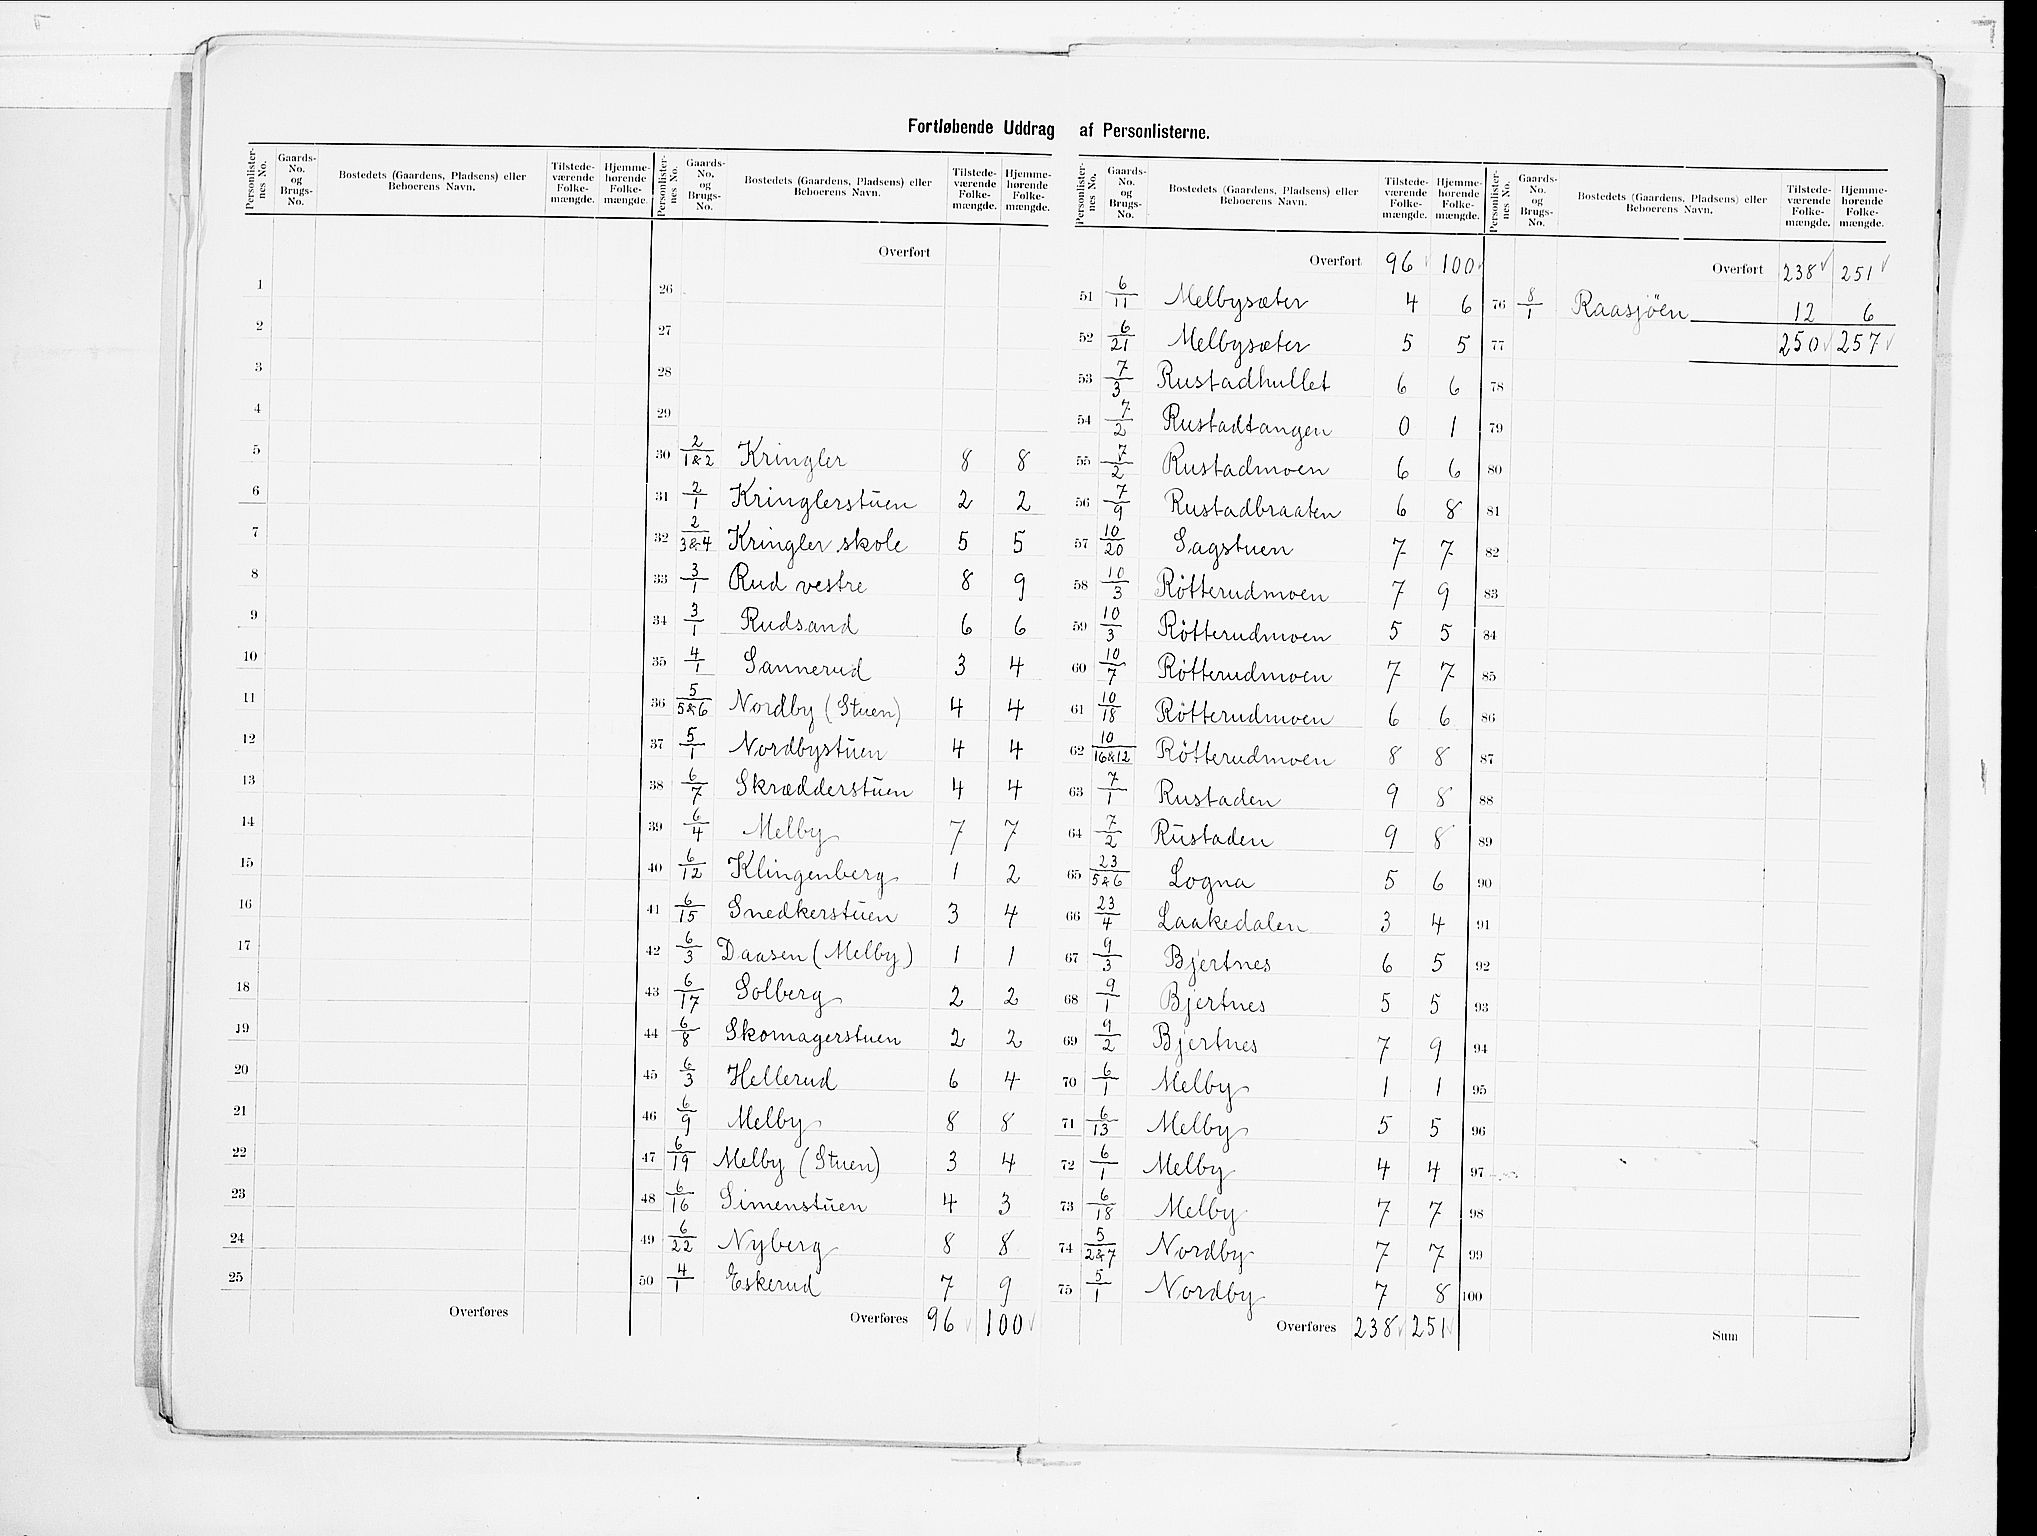 Fortløbende Uddrag af Personlisterne.
Personlister-nes No. Gaards-No. og Brugs-No. Bostedets (Gaardens, Pladsens) eller Beboerens Navn. Tilstede-værende Folke-mængde. Hjemme-hørende Folke-mængde.
1
2
3
4
5
6
7
8
9
10
11
12
13
14
15
16
17
18
19
20
21
22
23
24
25
Overføres
Personlister-nes No. Gaards-No. og Brugs-No. Bostedets (Gaardens, Pladsens) eller Beboerens Navn. Tilstede-værende Folke-mængde. Hjemme-hørende Folke-mængde.
Overført
26
27
28
29
30 2/1&2 Kringler 8 8
31 2/1 Kringlerstuen 2 2
32 2/3&4 Kringler skole 5 5
33 3/1 Rud vestre 8 9
34 3/1 Rudsand 6 6
35 4/1 Sannerud 3 4
36 5/5&6 Nordby (Stuen) 4 4
37 5/1 Nordbystuen 4 4
38 6/7 Skrædderstuen 4 4
39 6/4 Melby 7 7
40 6/12 Klingenberg 1 2
41 6/15 Snedkerstuen 3 4
42 6/3 Daasen (Melby) 1 1
43 6/17 Solberg 2 2
44 6/8 Skomagerstuen 2 2
45 6/3 Hellerud 6 4
46 6/9 Melby 8 8
47 6/19 Melby (Stuen) 3 4
48 6/16 Simenstuen 4 3
49 6/22 Nyberg 8 8
50 4/1 Eskerud 7 9
Overføres 96 100
Personlister-nes No. Gaards-No. og Brugs-No. Bostedets (Gaardens, Pladsens) eller Beboerens Navn. Tilstede-værende Folke-mængde. Hjemme-hørende Folke-mængde.
Overført 96 100
51 6/11 Melbysæter 4 6
52 6/21 Melbysæter 5 5
53 7/3 Rustadhullet 6 6
54 7/2 Rustadtangen 0 1
55 7/2 Rustadmoen 6 6
56 7/9 Rustadbraaten 6 8
57 10/20 Sagstuen 7 7
58 10/3 Rötterudmoen 7 9
59 10/3 Rötterudmoen 5 5
60 10/7 Rötterudmoen 7 7
61 10/18 Rötterudmoen 6 6
62 10/16&12 Rötterudmoen 8 8
63 7/1 Rustaden 9 8
64 7/2 Rustaden 9 8
65 23/5&6 Logna 5 6
66 23/4 Laakedalen 3 4
67 9/3 Bjertnes 6 5
68 9/1 Bjertnes 5 5
69 9/2 Bjertnes 7 9
70 6/1 Melby 1 1
71 6/13 Melby 5 5
72 6/1 Melby 4 4
73 6/18 Melby 7 7
74 5/2&7 Nordby 7 7
75 5/1 Nordby 7 8
Overføres 238 251
Personlister-nes No. Gaards-No. og Brugs-No. Bostedets (Gaardens, Pladsens) eller Beboerens Navn. Tilstede-værende Folke-mængde. Hjemme-hørende Folke-mængde.
Overført 238 251
76 8/1 Raasjöen 12 6
77 250 257
78
79
80
81
82
83
84
85
86
87
88
89
90
91
92
93
94
95
96
97
98
99
100
Sum